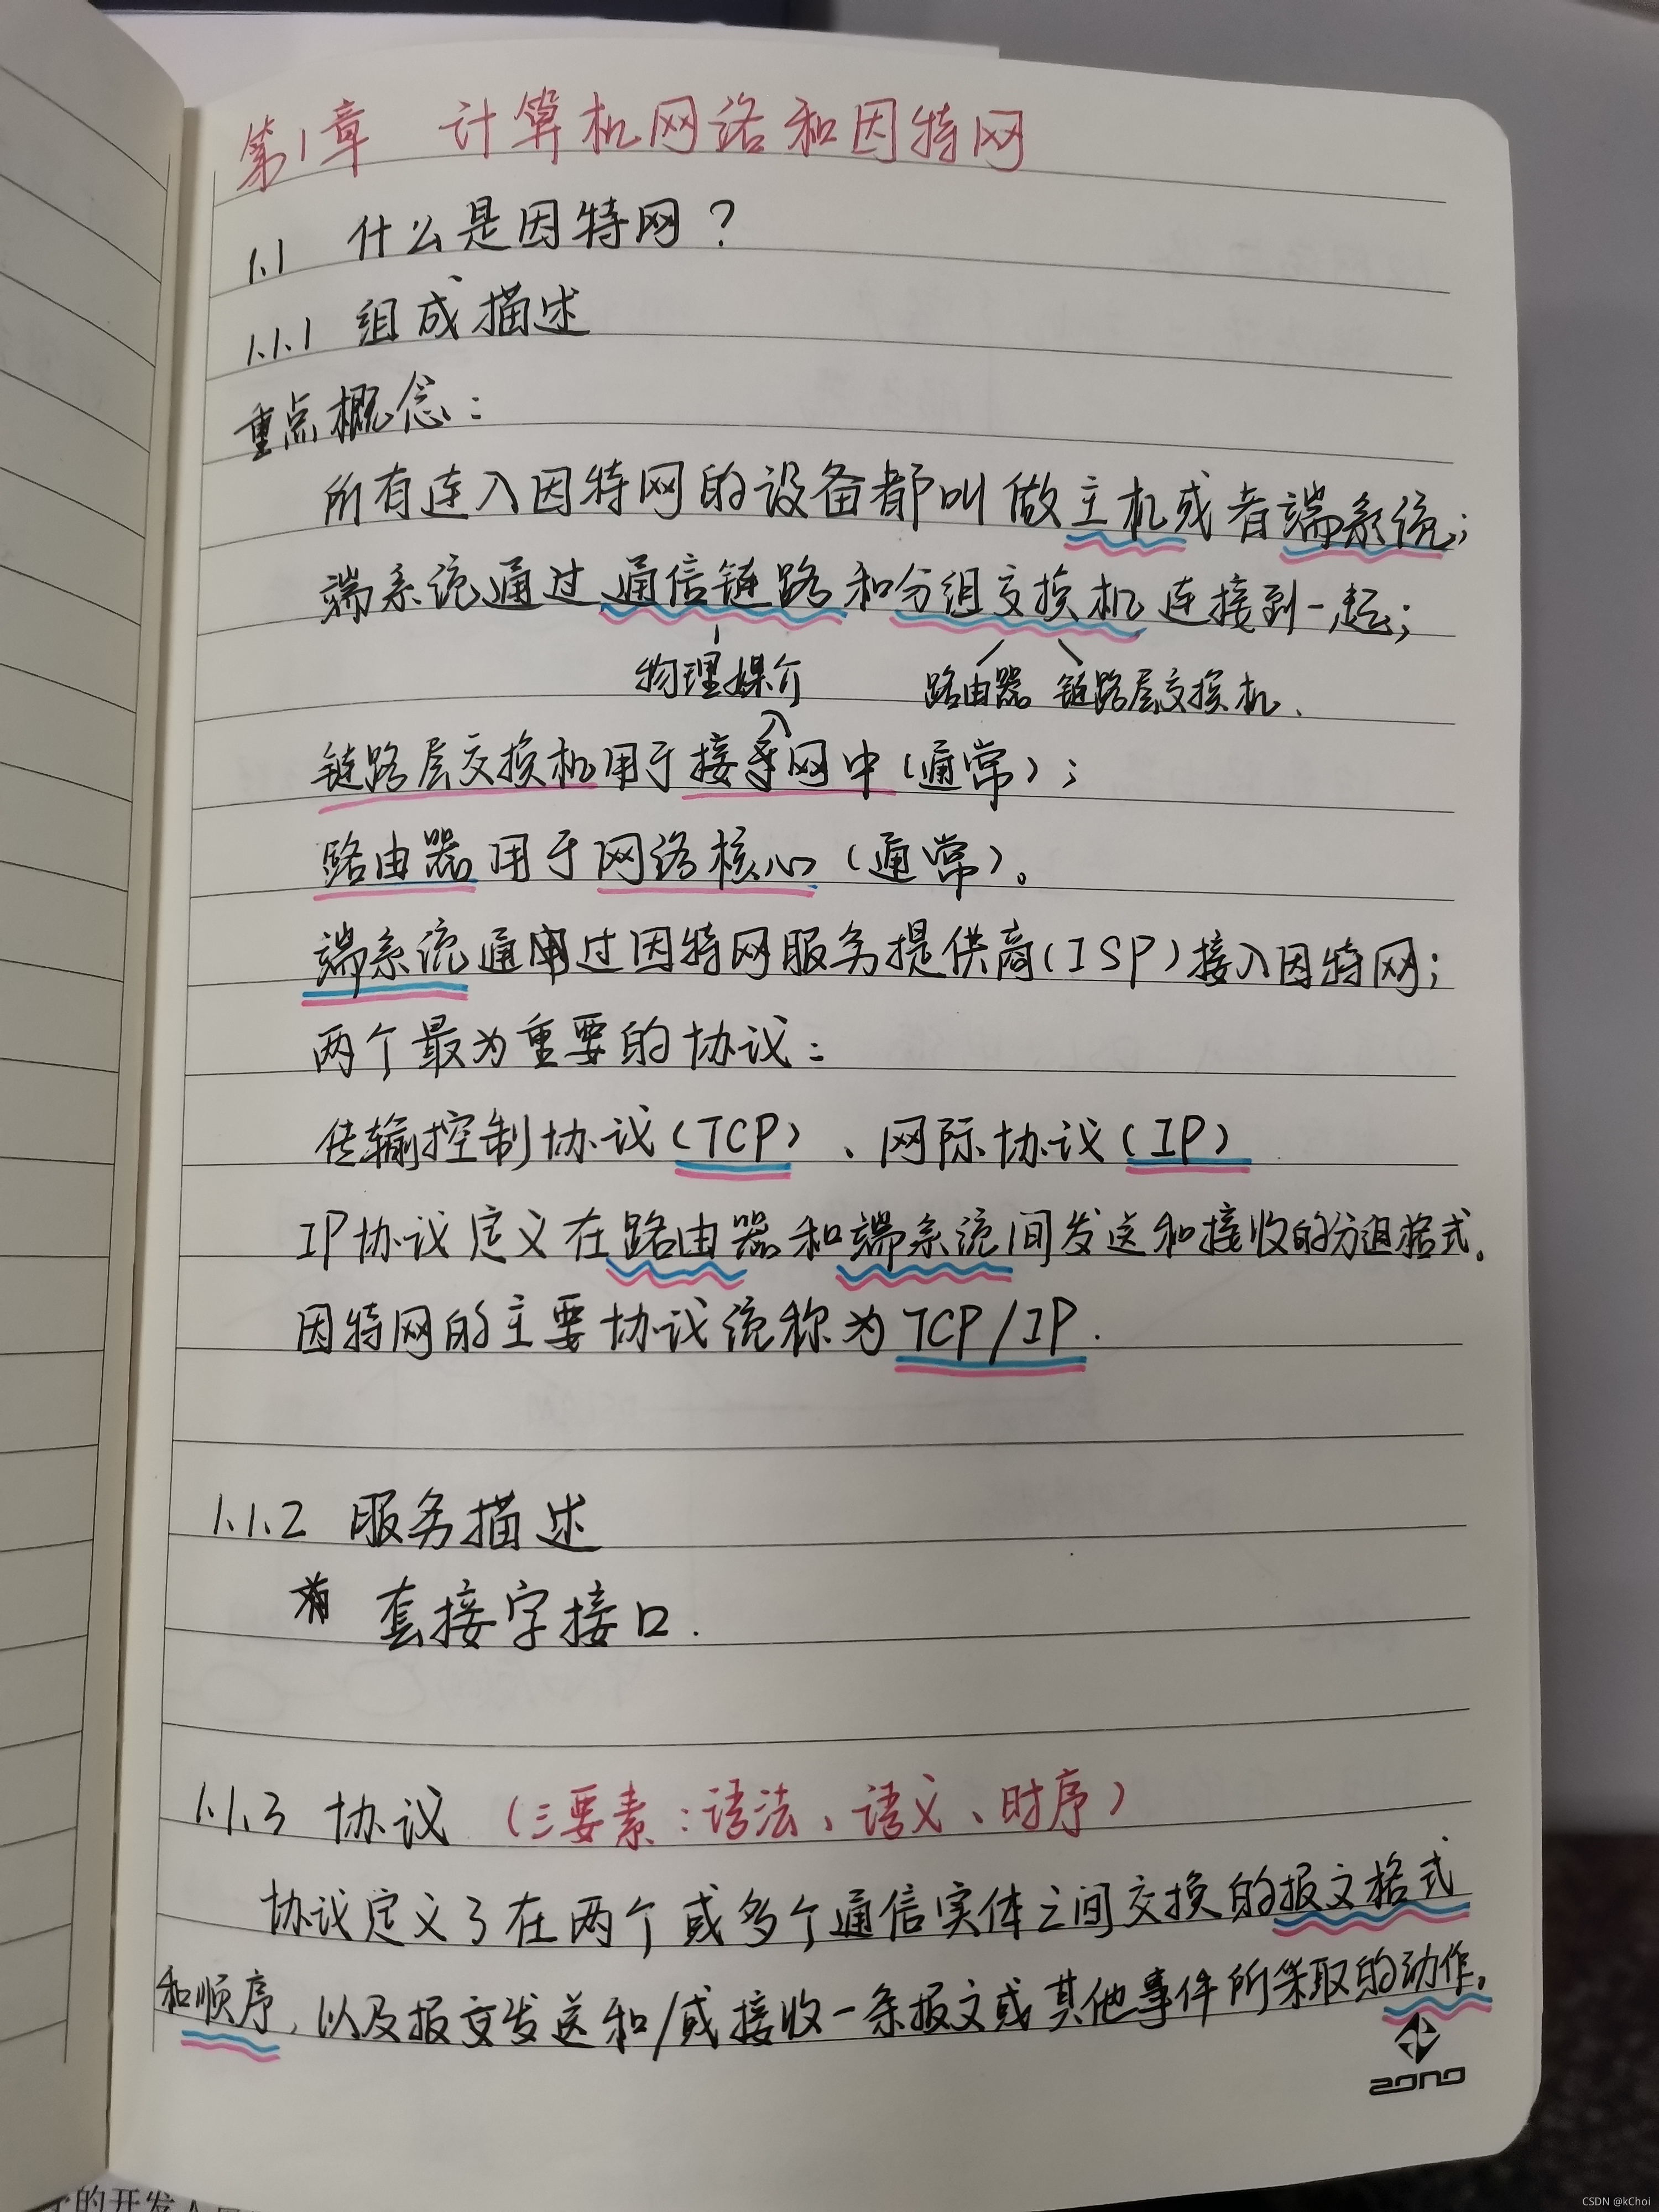 第1章 计算机网络和因特网
1.1 什么是因特网？
1.1.1 组成描述
重点概念：
所有连入因特网的设备都叫做主机或者端系统；
端系统通过通信链路和分组交换机连接到一起；
物理媒介 路由器 链路层交换机.
链路层交换机用于接入网中（通常）；
路由器用于网络核心（通常）。
端系统通过因特网服务提供商(ISP)接入因特网；
两个最为重要的协议：
传输控制协议(TCP)、网际协议(IP)
IP协议定义在路由器和端系统间发送和接收的分组格式。
因特网的主要协议统称为TCP/IP.
1.1.2 服务描述
套接字接口.
1.1.3 协议（三要素：语法、语义、时序）
协议定义了在两个或多个通信实体之间交换的报文格式
和顺序，以及报文发送和/或接收一条报文或其他事件所采取的动作。
zono
的开发人
CSDN @kChoi